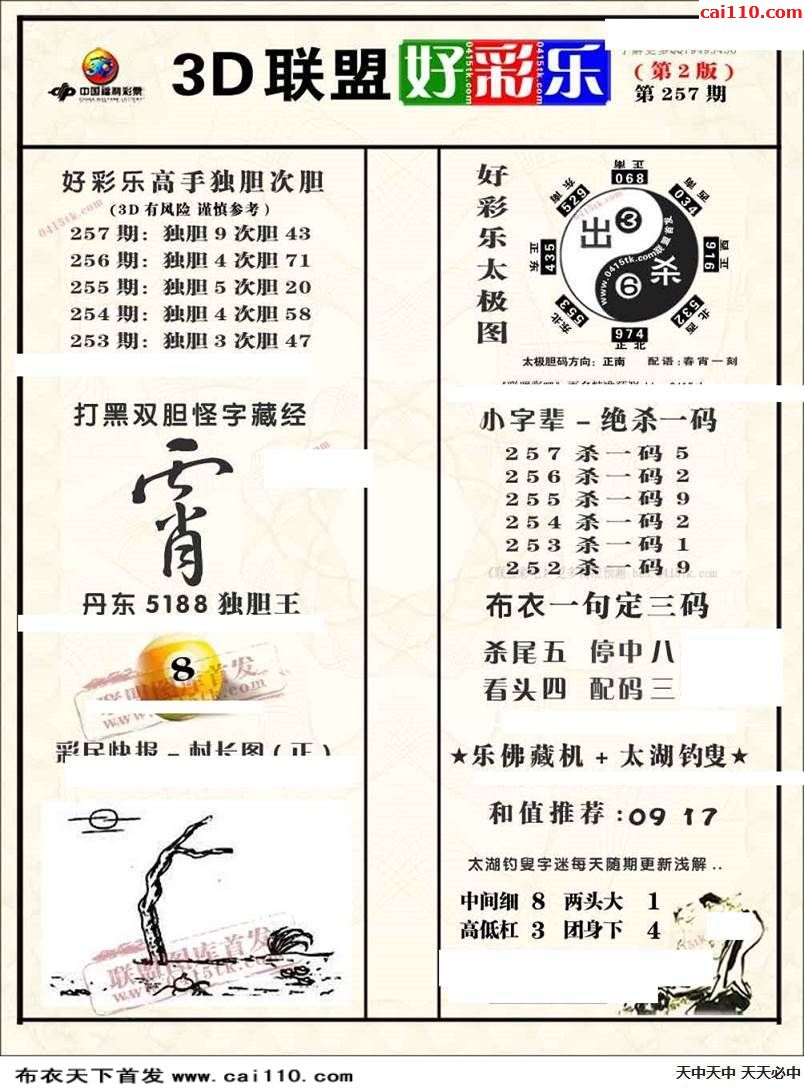 cai110.com
中国福利彩票
CHINA WELFARE LOTTERY
3D联盟
好彩乐
0415tk.com
0415tk.com
(第2版)
第257期
好彩乐高手独胆次胆
(3D有风险 谨慎参考)
0415tk.com
257期: 独胆9次胆43
256期: 独胆4次胆71
255期: 独胆5次胆20
254期: 独胆4次胆58
253期: 独胆3次胆47
好彩乐太极图
正南
068
东南
529
西南
034
正东
435
正西
916
东北
553
西北
532
974
正北
出 3
杀
6
www.0415tk.com联盟首发
太极胆码方向: 正南 配语:春宵一刻
打黑双胆怪字藏经
0415tk.com
霄
小字辈-绝杀一码
257杀一码5
256杀一码2
255杀一码9
254杀一码2
253杀一码1
252杀一码9
丹东5188独胆王
8
联盟图库首发
www.0415tk.com
布衣一句定三码
杀尾五 停中八
看头四 配码三
彩民快报-村长图(正)
联盟图库首发
www.0415tk.com
★乐佛藏机+太湖钓叟★
和值推荐:09 17
太湖钓叟字迷每天随期更新浅解..
中间细 8 两头大 1
高低杠 3 团身下 4
布衣天下首发 www.cai110.com
天中天中 天天必中